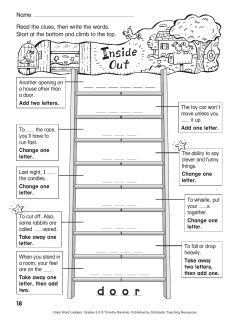 Name
Read the clues, then write the words.
Start at the bottom and climb to the top.
Inside
Out
Another opening on
a house other than
a door.
Add two letters.
The toy car won't
move unless you
___ it up.
Add one letter.
To ___ the race,
you'll have to
run fast.
Change one
letter.
The ability to say
clever and funny
things.
Change one
letter.
Last night, I ___
the candles.
Change one
letter.
To whistle, put
your ___s
together.
Change one
letter.
To cut off. Also,
some rabbits are
called ___-eared.
Take away one
letter.
To fall or drop
heavily.
Take away
two letters,
then add one.
When you stand in
a room, your feet
are on the ___.
Take away one
letter, then add
two.
door
18
Daily Word Ladders: Grades 2-3 © Timothy Rasinski, Published by Scholastic Teaching Resources